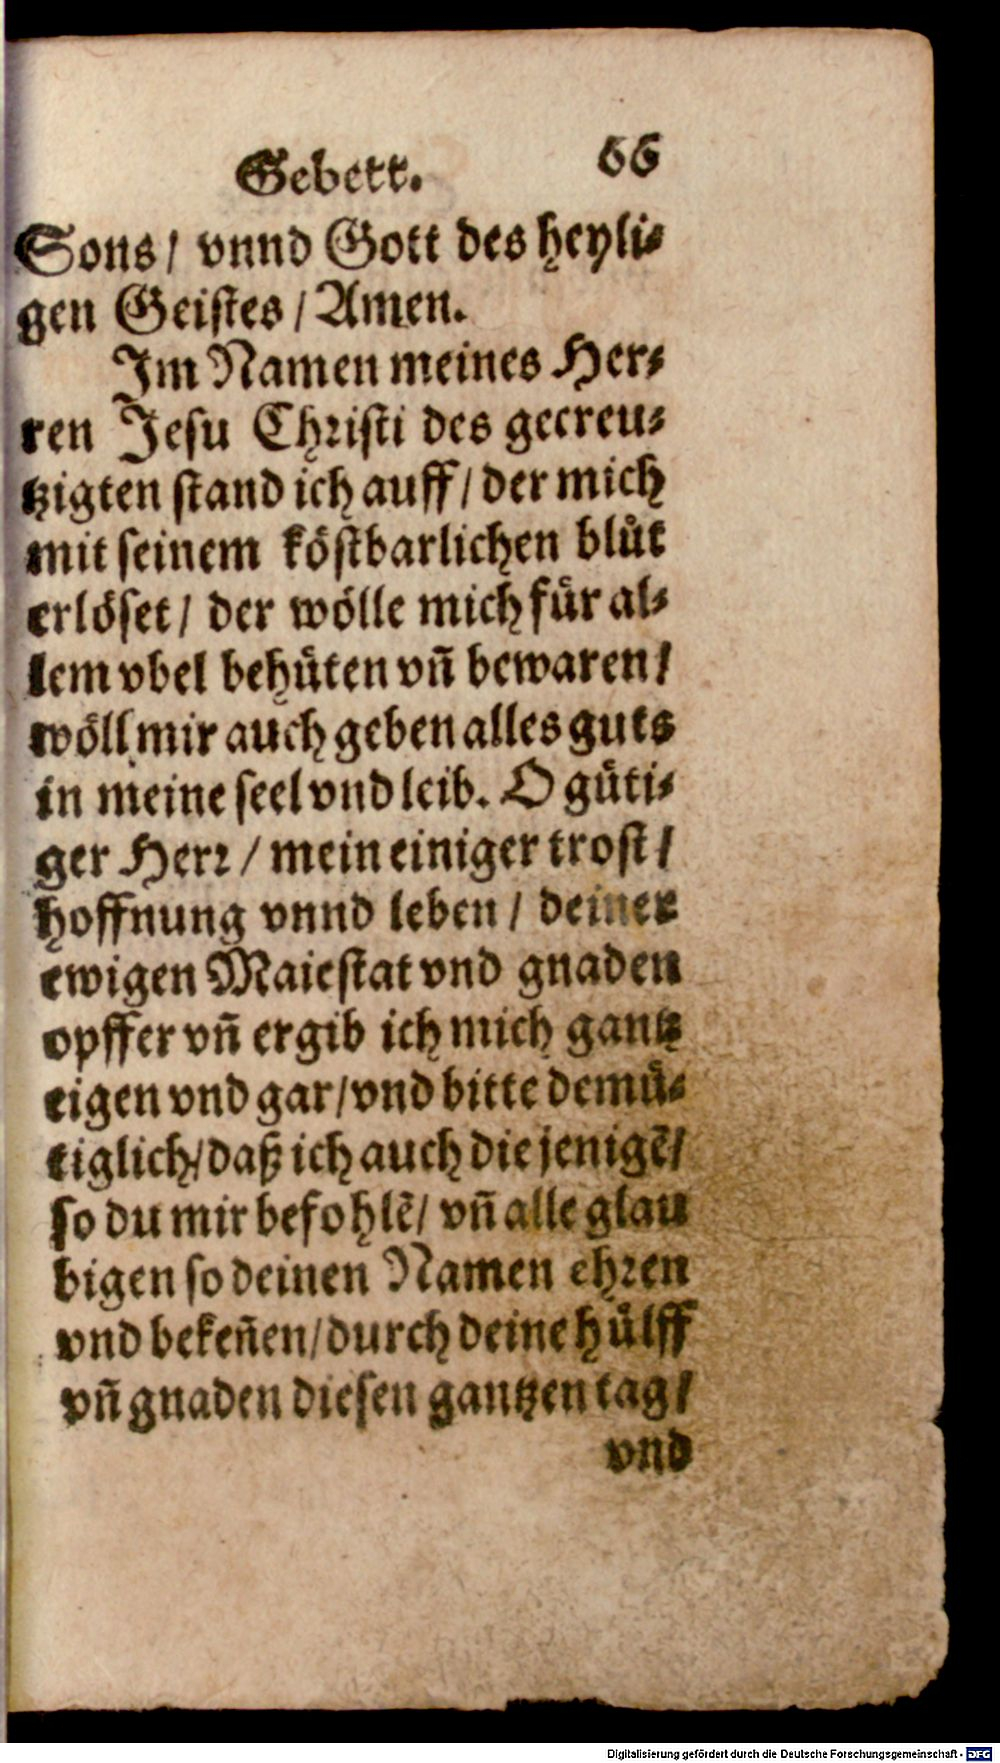 Gebett. 66
Sons/ vnnd Gott des heyli⸗
gen Geistes/ Amen.
Im Namen meines Her⸗
ren Jesu Christi des gecreu⸗
tzigten stand ich auff/ der mich
mit seinem köstbarlichen blůt
erlöset/ der wölle mich für al⸗
lem vbel behüten vñ bewaren/
wöll mir auch geben alles guts
in meine seel vnd leib. O güti⸗
ger Herr/ mein einiger trost/
hoffnung vnnd leben/ deiner
ewigen Maiestat vnd gnaden
opffer vñ ergib ich mich gantz
eigen vnd gar/ vnd bitte demü⸗
tiglich/ daß ich auch die jenigẽ/
so du mir befohlẽ/ vñ alle glau
bigen so deinen Namen ehren
vnd bekeñen/ durch deine hülff
vñ gnaden diesen gantzen tag/
vnd
Digitalisierung gefördert durch die Deutsche Forschungsgemeinschaft - DFG